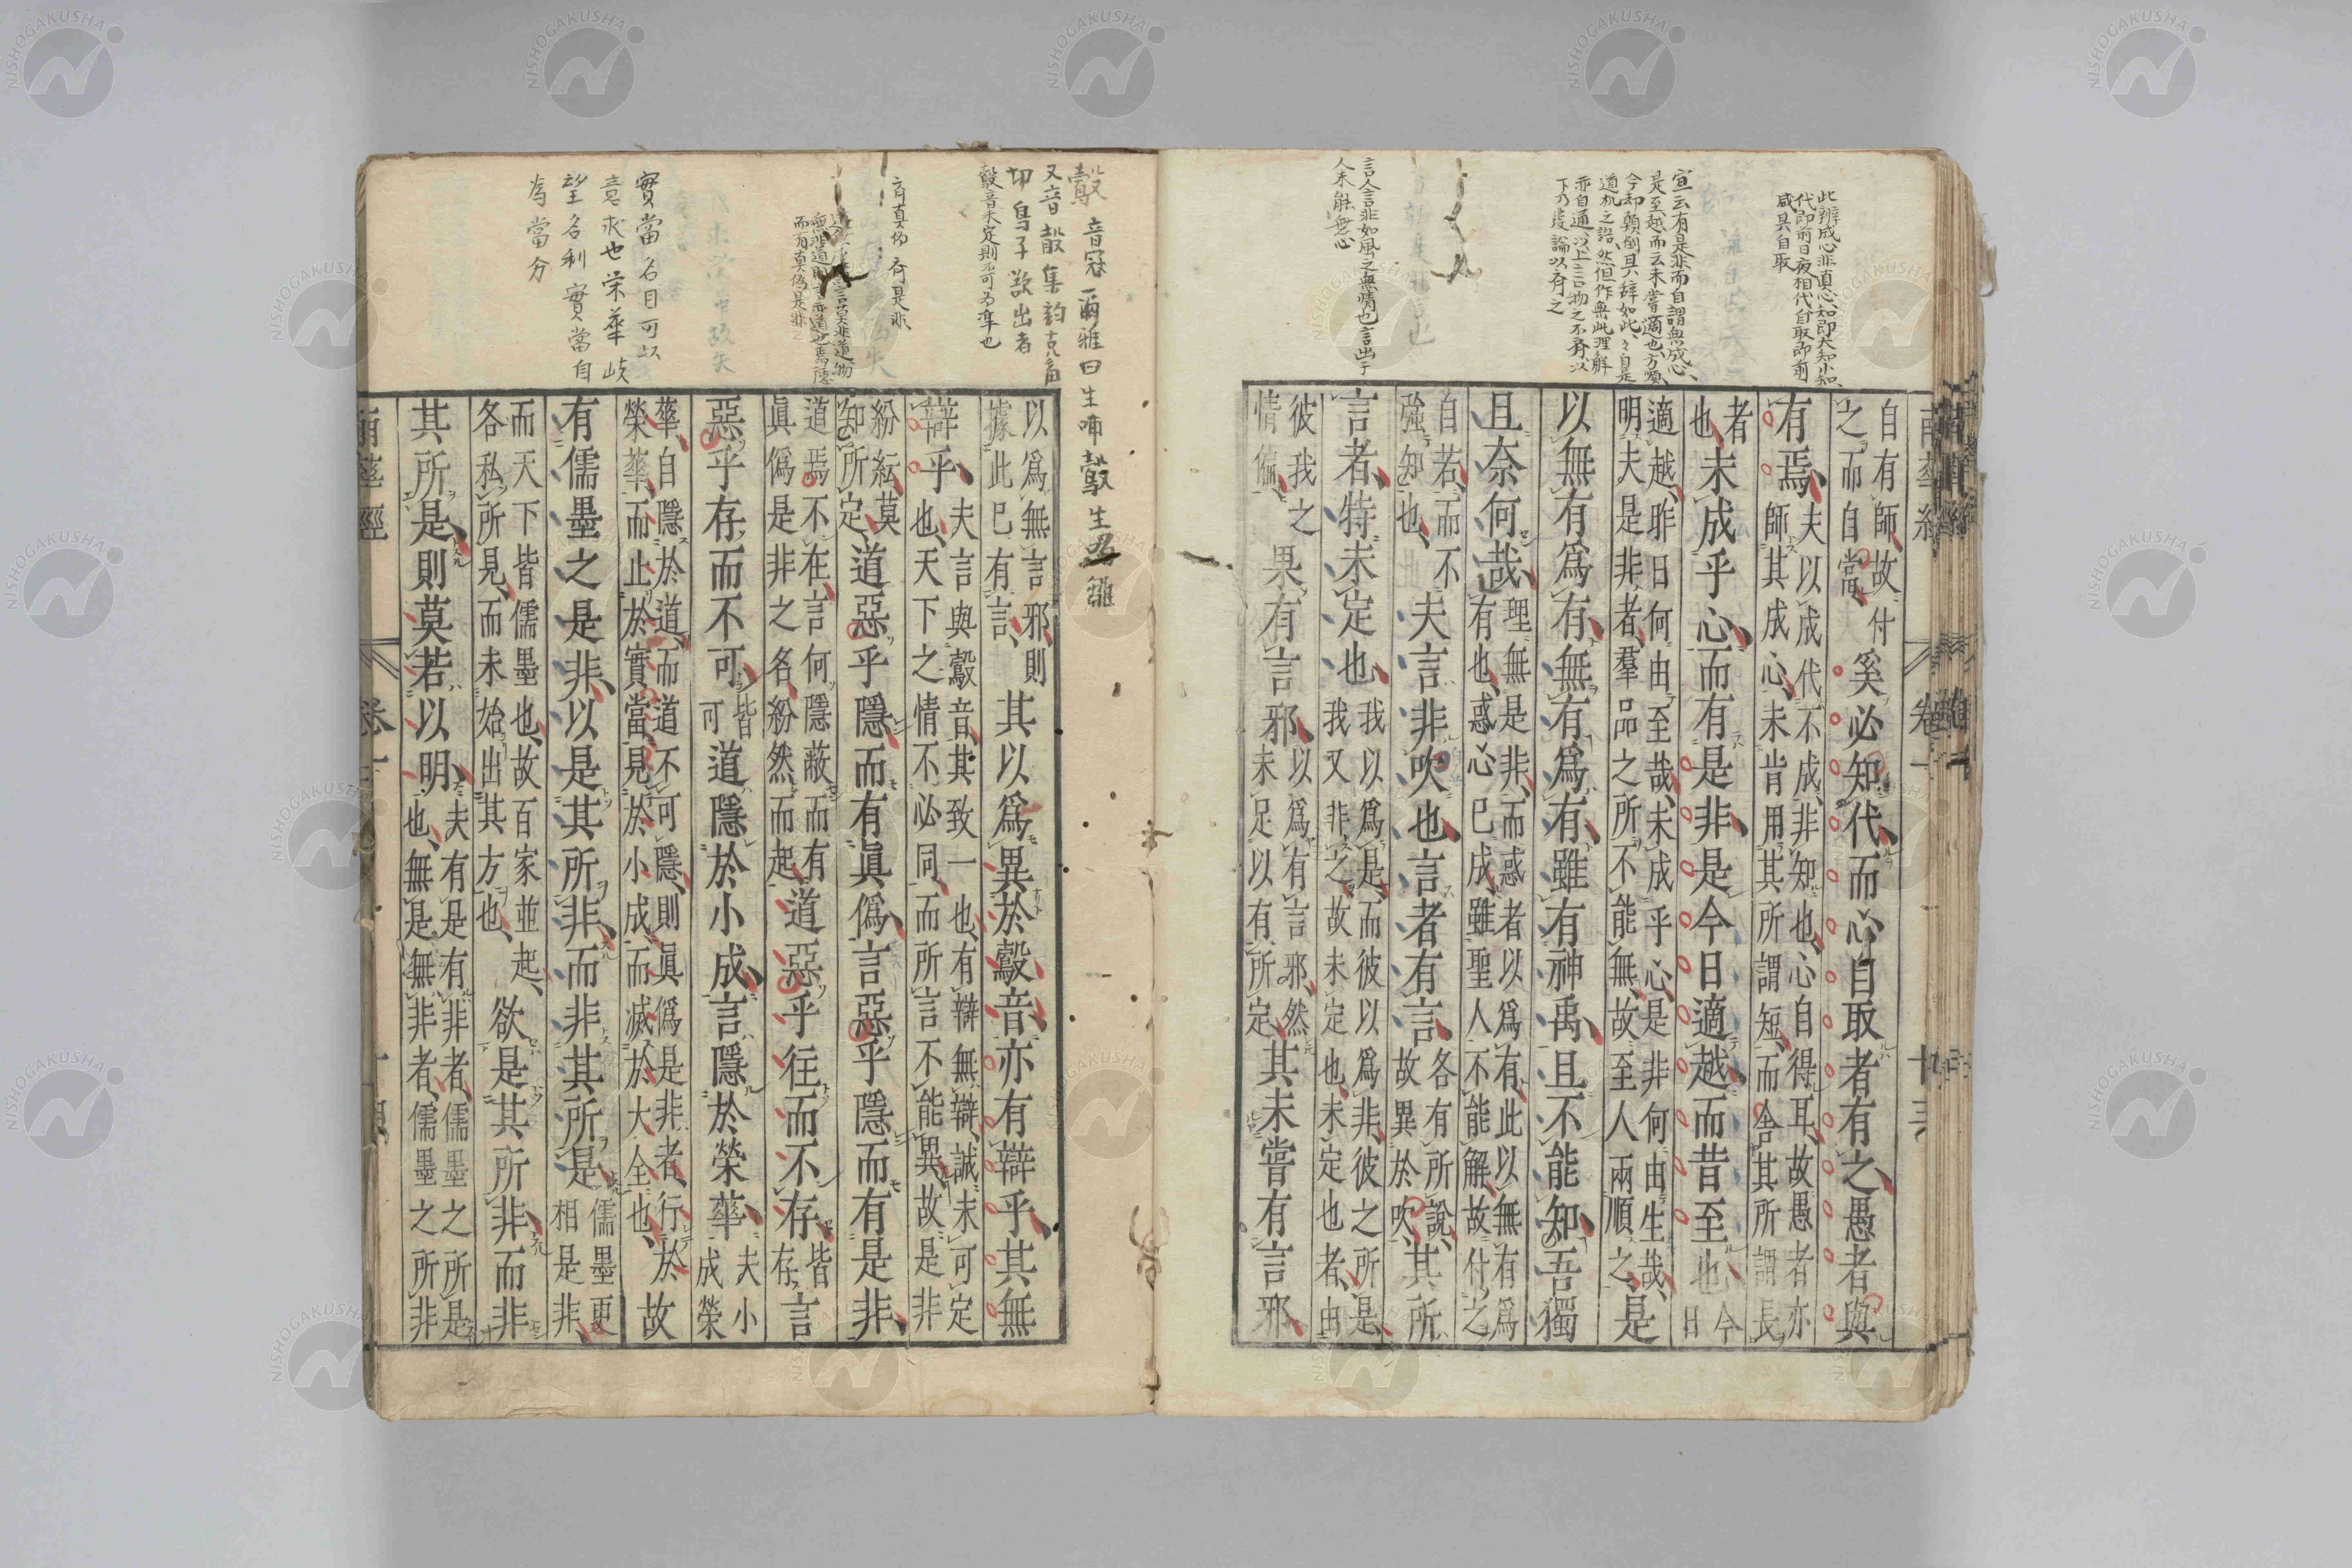 此辨成心非真心知即大知小知
代即前日夜相代自取即前
咸其自取
宣云有是非而自謂無成心
是至越而云未嘗適也方順
今却顛倒且
言人言非如風之無情也言出于
人未能無心
南華經
卷一
十三
自有師故付
之而自當
奚必知代而心自取者有之愚者與
有焉
夫以成代不成非知也心自得耳故愚者亦
師其成心未肯用其所謂短而舍其所謂長
者
也
未成乎心而有是非是今日適越而昔至也
今
日
適越昨日何由至哉未成乎心是非何由生哉
明夫是非者羣品之所不能無故至人兩順之
是
以無有爲有無有爲有雖有神禹且不能知吾獨
且奈何哉
理無是非而惑者以爲有此以無有爲
有也惑心已成雖聖人不能解故付之
自若而不
強知也
夫言非吹也言者有言
各有所說
故異於吹
其所
言者特未定也
我以爲是而彼以爲非彼之所是
我又非之故未定也未定也者由
彼我之
情偏
果有言邪
以爲有言邪然
未足以有所定
其未嘗有言邪
鷇音冠爾雅曰生哺鷇生噣雛
又音殻集韵克角
切鳥子欲出者
鷇音未定則不可爲準也
以爲無言邪則
據此已有言
其以爲異於鷇音亦有辯乎其無
辯乎
夫言與鷇音其致一也有辯無辯誠未可定
也天下之情不必同而所言不能異故是非
紛紜莫
知所定
道惡乎隱而有眞僞言惡乎隱而有是非
道焉不在言何隱蔽而有
眞僞是非之名紛然而起
道惡乎往而不存
皆
存
言
惡乎存而不可
皆
可
道隱於小成言隱於榮華
夫小
成榮
華自隱於道而道不可隱則眞僞是非者行於
榮華而止於實當見於小成而滅於大全也
故
有儒墨之是非以是其所非而非其所是
儒墨更
相是非
而天下皆儒墨也故百家並起
各私所見而未始出其方也
欲是其所非而非
其所是則莫若以明
夫有是有非者儒墨之所是
也無是無非者儒墨之所非
齊真偽齊是非
而有真偽是非
實當名目可以
意求也栄華岐
望名利實當自
為當分
南華經
卷一